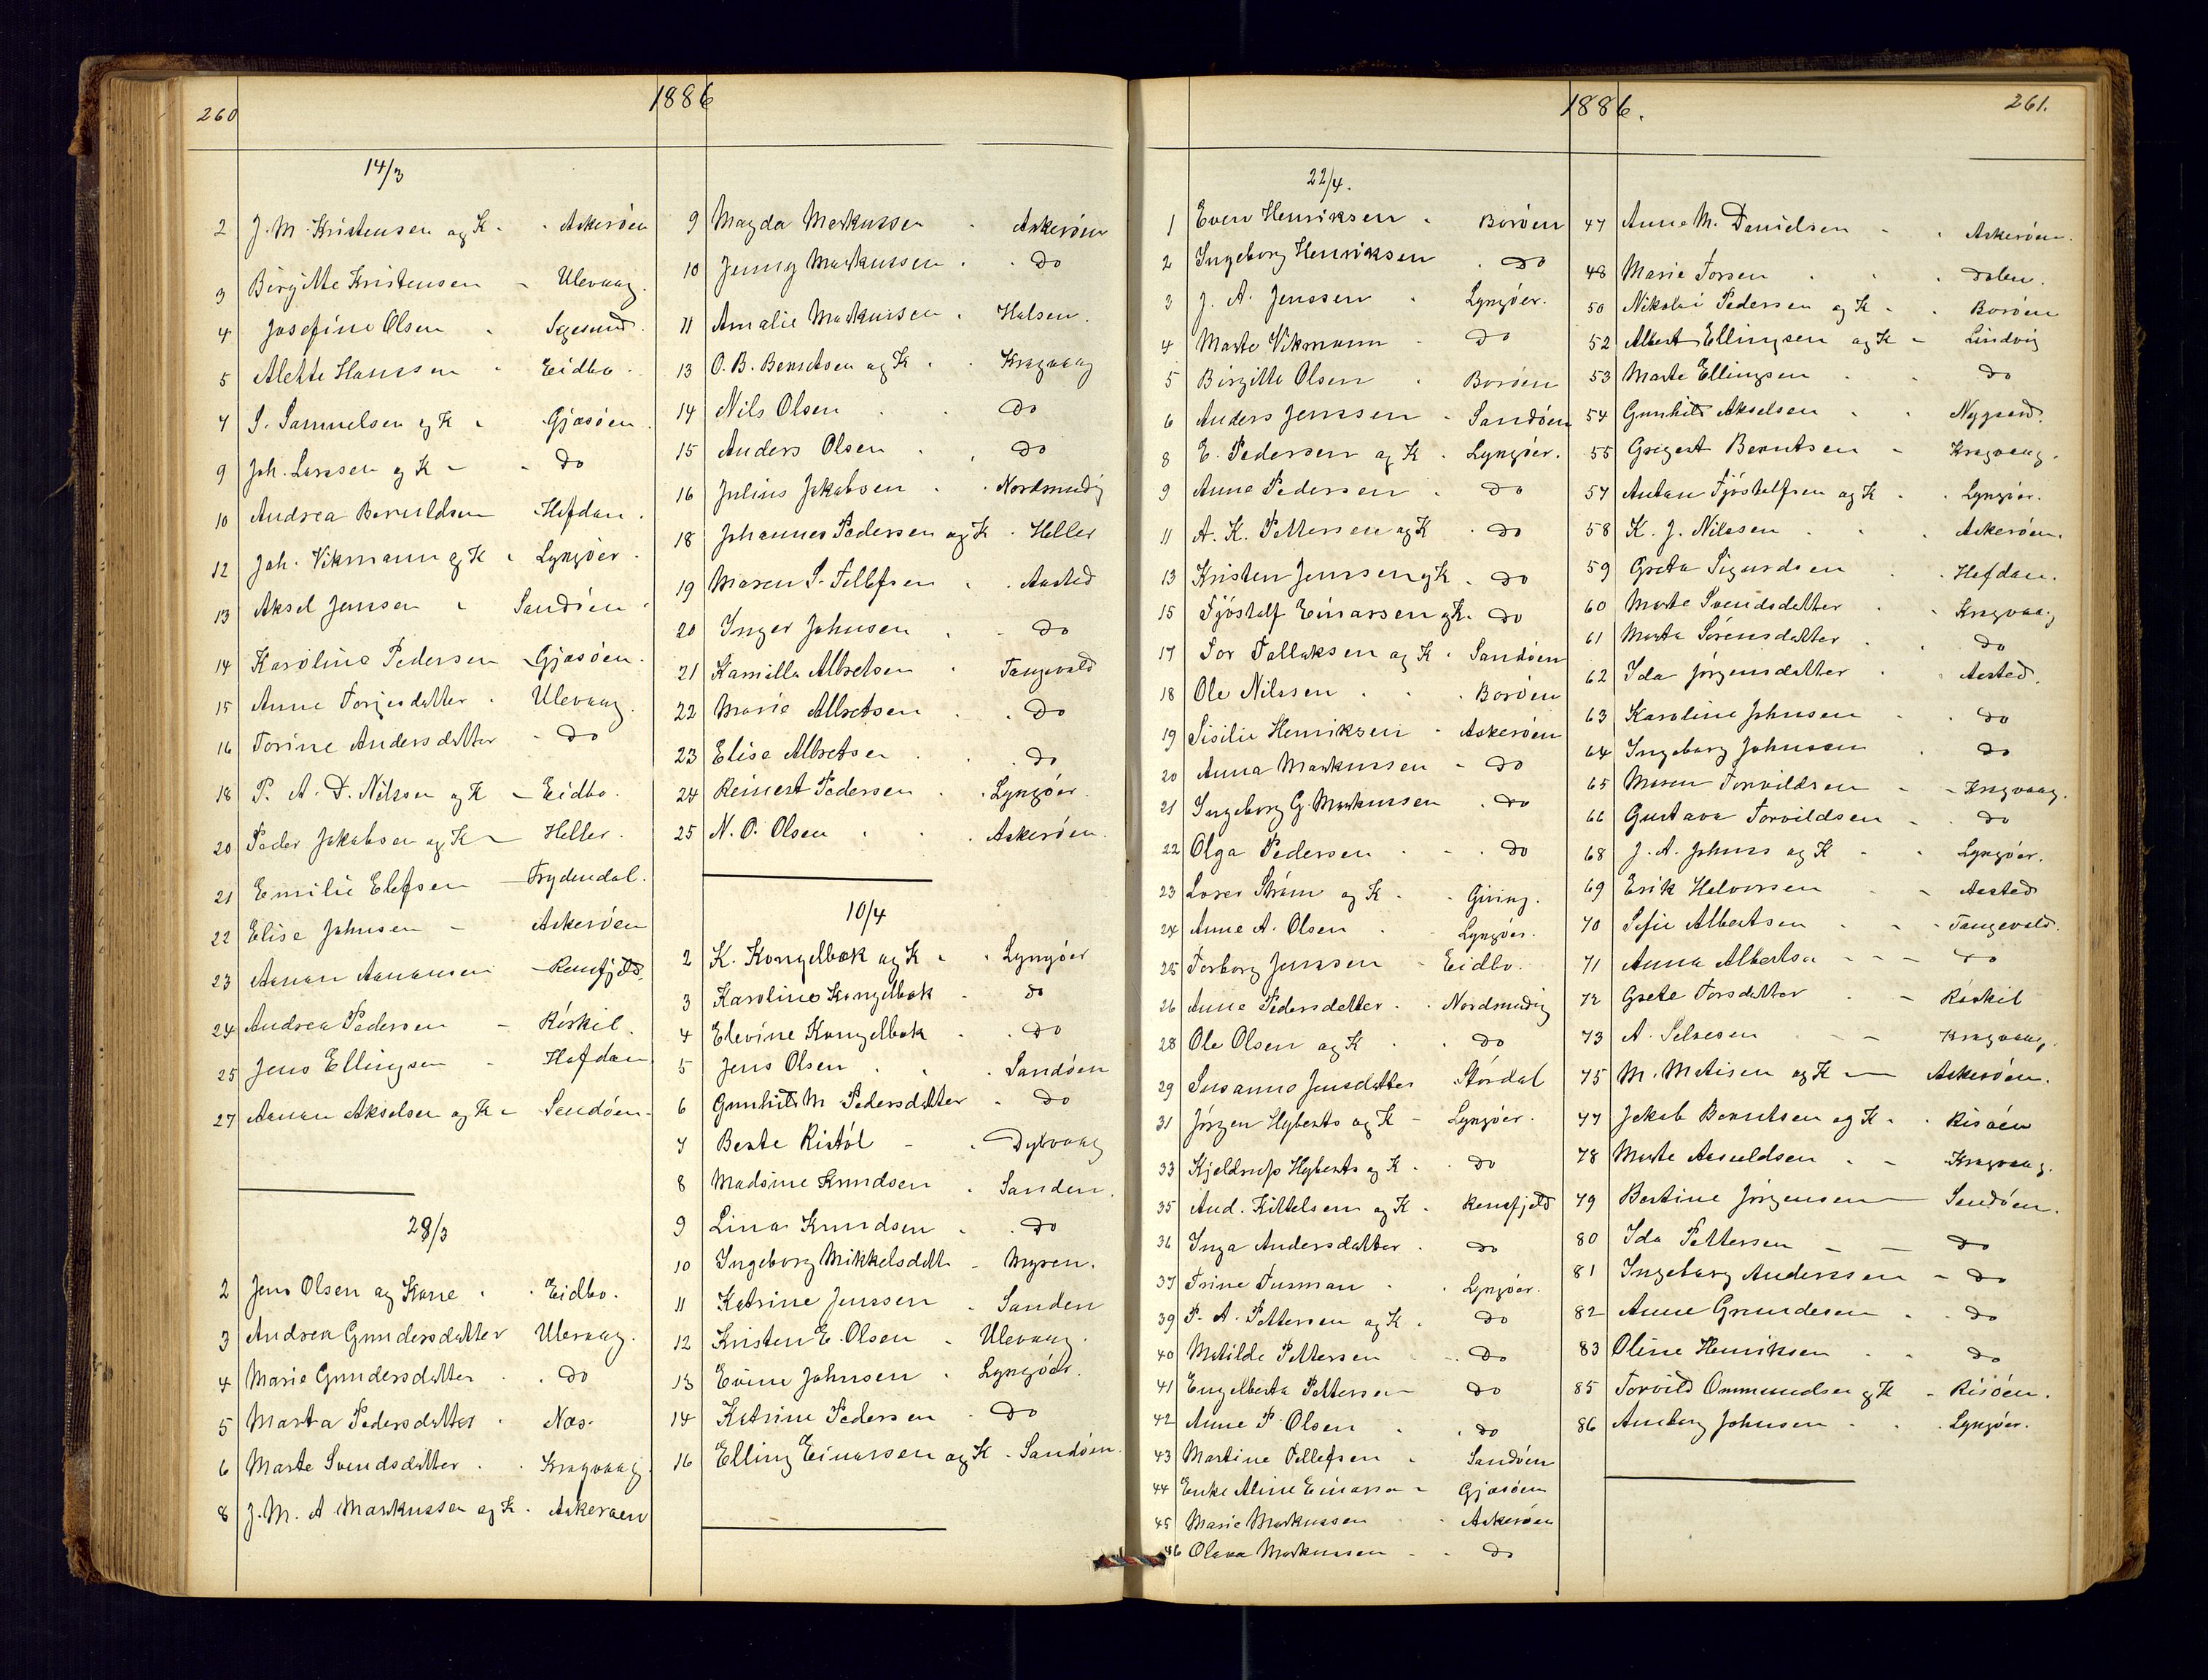 260
1886
14/3
2 J. M. Kristensen og K. - - Askerøen
3 Birgitte Kristensen - Ulevaag.
4 Josefine Olsen - Sagesund.
5 Alette Hanssen - Eidbo.
7 S. Samuelsen og K - Gjæsøen.
9 Joh. Larssen og K - - do
10 Andrea Beruldsen - Hafdan.
12 Joh. Vikmann og K - Lyngøer.
13 Aksel Jensen - Sandøen.
14 Karoline Pedersen - Gjæsøen.
15 Anne Torjesdatter - Ulevaag.
16 Torine Andersdatter - do
18 P. A. D. Nilsen og K - Eidbo.
20 Peder Jakobsen og K - Heller.
21 Emilie Elefsen - Frydendal.
22 Elise Johnsen - Askerøen
23 Aanan Aanansen - Ramfjeld.
24 Andrea Pedersen - Røskil.
25 Jens Ellingsen - Hafdan
27 Aanan Akselsen og K - Sandøen.
28/3
2 Jens Olsen og Kone - - Eidbo.
3 Andrea Gundersdatter Ulevaag.
4 Marie Gundersdatter - do
5 Marta Pedersdatter - Næs.
6 Marte Svendsdatter - - Kragvaag.
8 J. M. A Markussen og K. - Askerøen
9 Magda Markussen - Askerøen
10 Jenny Markussen - - do
11 Amalie Markussen - Halsen.
13 O. B. Berntsen og K - - Kragvaag
14 Nils Olsen - - do
15 Anders Olsen - - do
16 Julius Jakobsen - - Nordmudig
18 Johannes Pedersen og K - Heller
19 Maren S. Tellefsen - Aasted
20 Inger Johnsen - - do
21 Kamilla Albretsen - Tangevald
22 Marie Albretsen - - do
23 Elise Albretsen - - do
24 Reinert Pedersen - - Lyngøer.
25 N. O. Olsen - - Askerøen.
10/4
2 K. Kongelbæk og K - - Lyngøer
3 Karoline Kongelbæk - do
4 Elevine Kongelbæk - - do
5 Jens Olsen - - - Sandøen
6 Gunhild M Pedersdatter - do
7 Berte Ristøl - - Dybvaag
8 Madsine Knudsen - Sanden.
9 Lina Knudsen - - do
10 Ingeborg Mikkelsdatt - Myren.
11 Katrine Jenssen - Sanden
12 Kristen E. Olsen - Ulevaag.
13 Evine Johnsen - Lyngøer.
14 Katrine Pedersen - do
16 Elling Einarsen og K - Sandøen.
1886.
261.
22/4.
1 Even Henriksen - Borøen
2 Ingeborg Henriksen - do
3 J. A. Jenssen - Lyngøer.
4 Marte Vikmann - do
5 Birgitte Olsen - Borøen
6 Anders Jenssen - Sandøen
8 E. Pedersen og K - Lyngøer.
9 Anne Pedersen - do
11 A. K. Pettersen og K - do
13 Kristen Jenssen og K - do
15 Tjøstolf Einarsen og K. do
17 Tor Tallaksen og K - Sandøen
18 Ole Nilssen - - - Borøen
19 Sisilie Henriksen - Askerøen
20 Anna Markussen - do
21 Ingeborg G. Markussen - do
22 Olga Pedersen - - - do
23 Lares Strøm og K - - Giving.
24 Anne A. Olsen - - Lyngøer.
25 Torborg Jenssen - Eidbo.
26 Anne Pedersdatter - - Nordmudig
28 Ole Olsen og K - - do
29 Susanne Jensdatter Størdal
31 Jørgen Hyberts og K - Lyngøer.
33 Kjeldrup Hyberts og K - - do
35 And. Kittelsen og K - Ramfjeld
36 Inga Andersdatter - do
37 Trine Tusman - - Lyngøer.
39 P. A. Pettersen og K - do
40 Matilde Pettersen - - do
41 Engelberta Pettersen do
42 Anne P. Olsen - - do
43 Martine Tellefsen - Sandøen
44 Enke Aline Einarsen - Gjæsøen
45 Marie Markussen - Askerøen
46 Olava Markussen - - do
47 Anne M. Danielsen - - Askerøen.
48 Marie Torsen - - - Dalen.
50 Nikolai Pedersen og K - - Borøen
52 Albert Ellingsen og K - Lindvig
53 Marte Ellingsen - - do
54 Gunhild Akselsen - - Nygaard.
55 Gregert Berntsen - Kragvaag.
57 Antan Tjøstolfsen og K - - Lyngøer.
58 K. J. Nilssen - - - Askerøen.
59 Greta Sigurdsen - - Hafdan.
60 Marte Svendsdatter - - Kragvaag
61 Marta Sørensdatter - - do
62 Ida Jørgensdatter - - Aasted.
63 Karoline Johnsen - - do
64 Ingeborg Johnsen - do
65 Maren Torvildsen - - Kragvaag.
66 Gustava Torvildsen - - do
68 J. A. Johnss og K - - Lyngøer.
69 Erik Halvorsen - - Aasted
70 Sofie Albertsen - - - Tangevald.
71 Anna Albertsen - - - do
72 Grete Torsdatter - - Røskil
73 A. Selaesen - - Kragvaag.
75 M. Matisen og K - Askerøen.
77 Jakob Berntsen og K - - Risøen
78 Marte Aanuldsen - - Kragvaag.
79 Bertine Jørgensen - Sandøen.
80 Ida Pettersen - - do
81 Ingeborg Anderssen - do
82 Anne Gundesen - - do
83 Oline Henriksen - - do
85 Torvild Ommundsen og K - Risøen.
86 Amborg Johnsen - - Lyngøer.